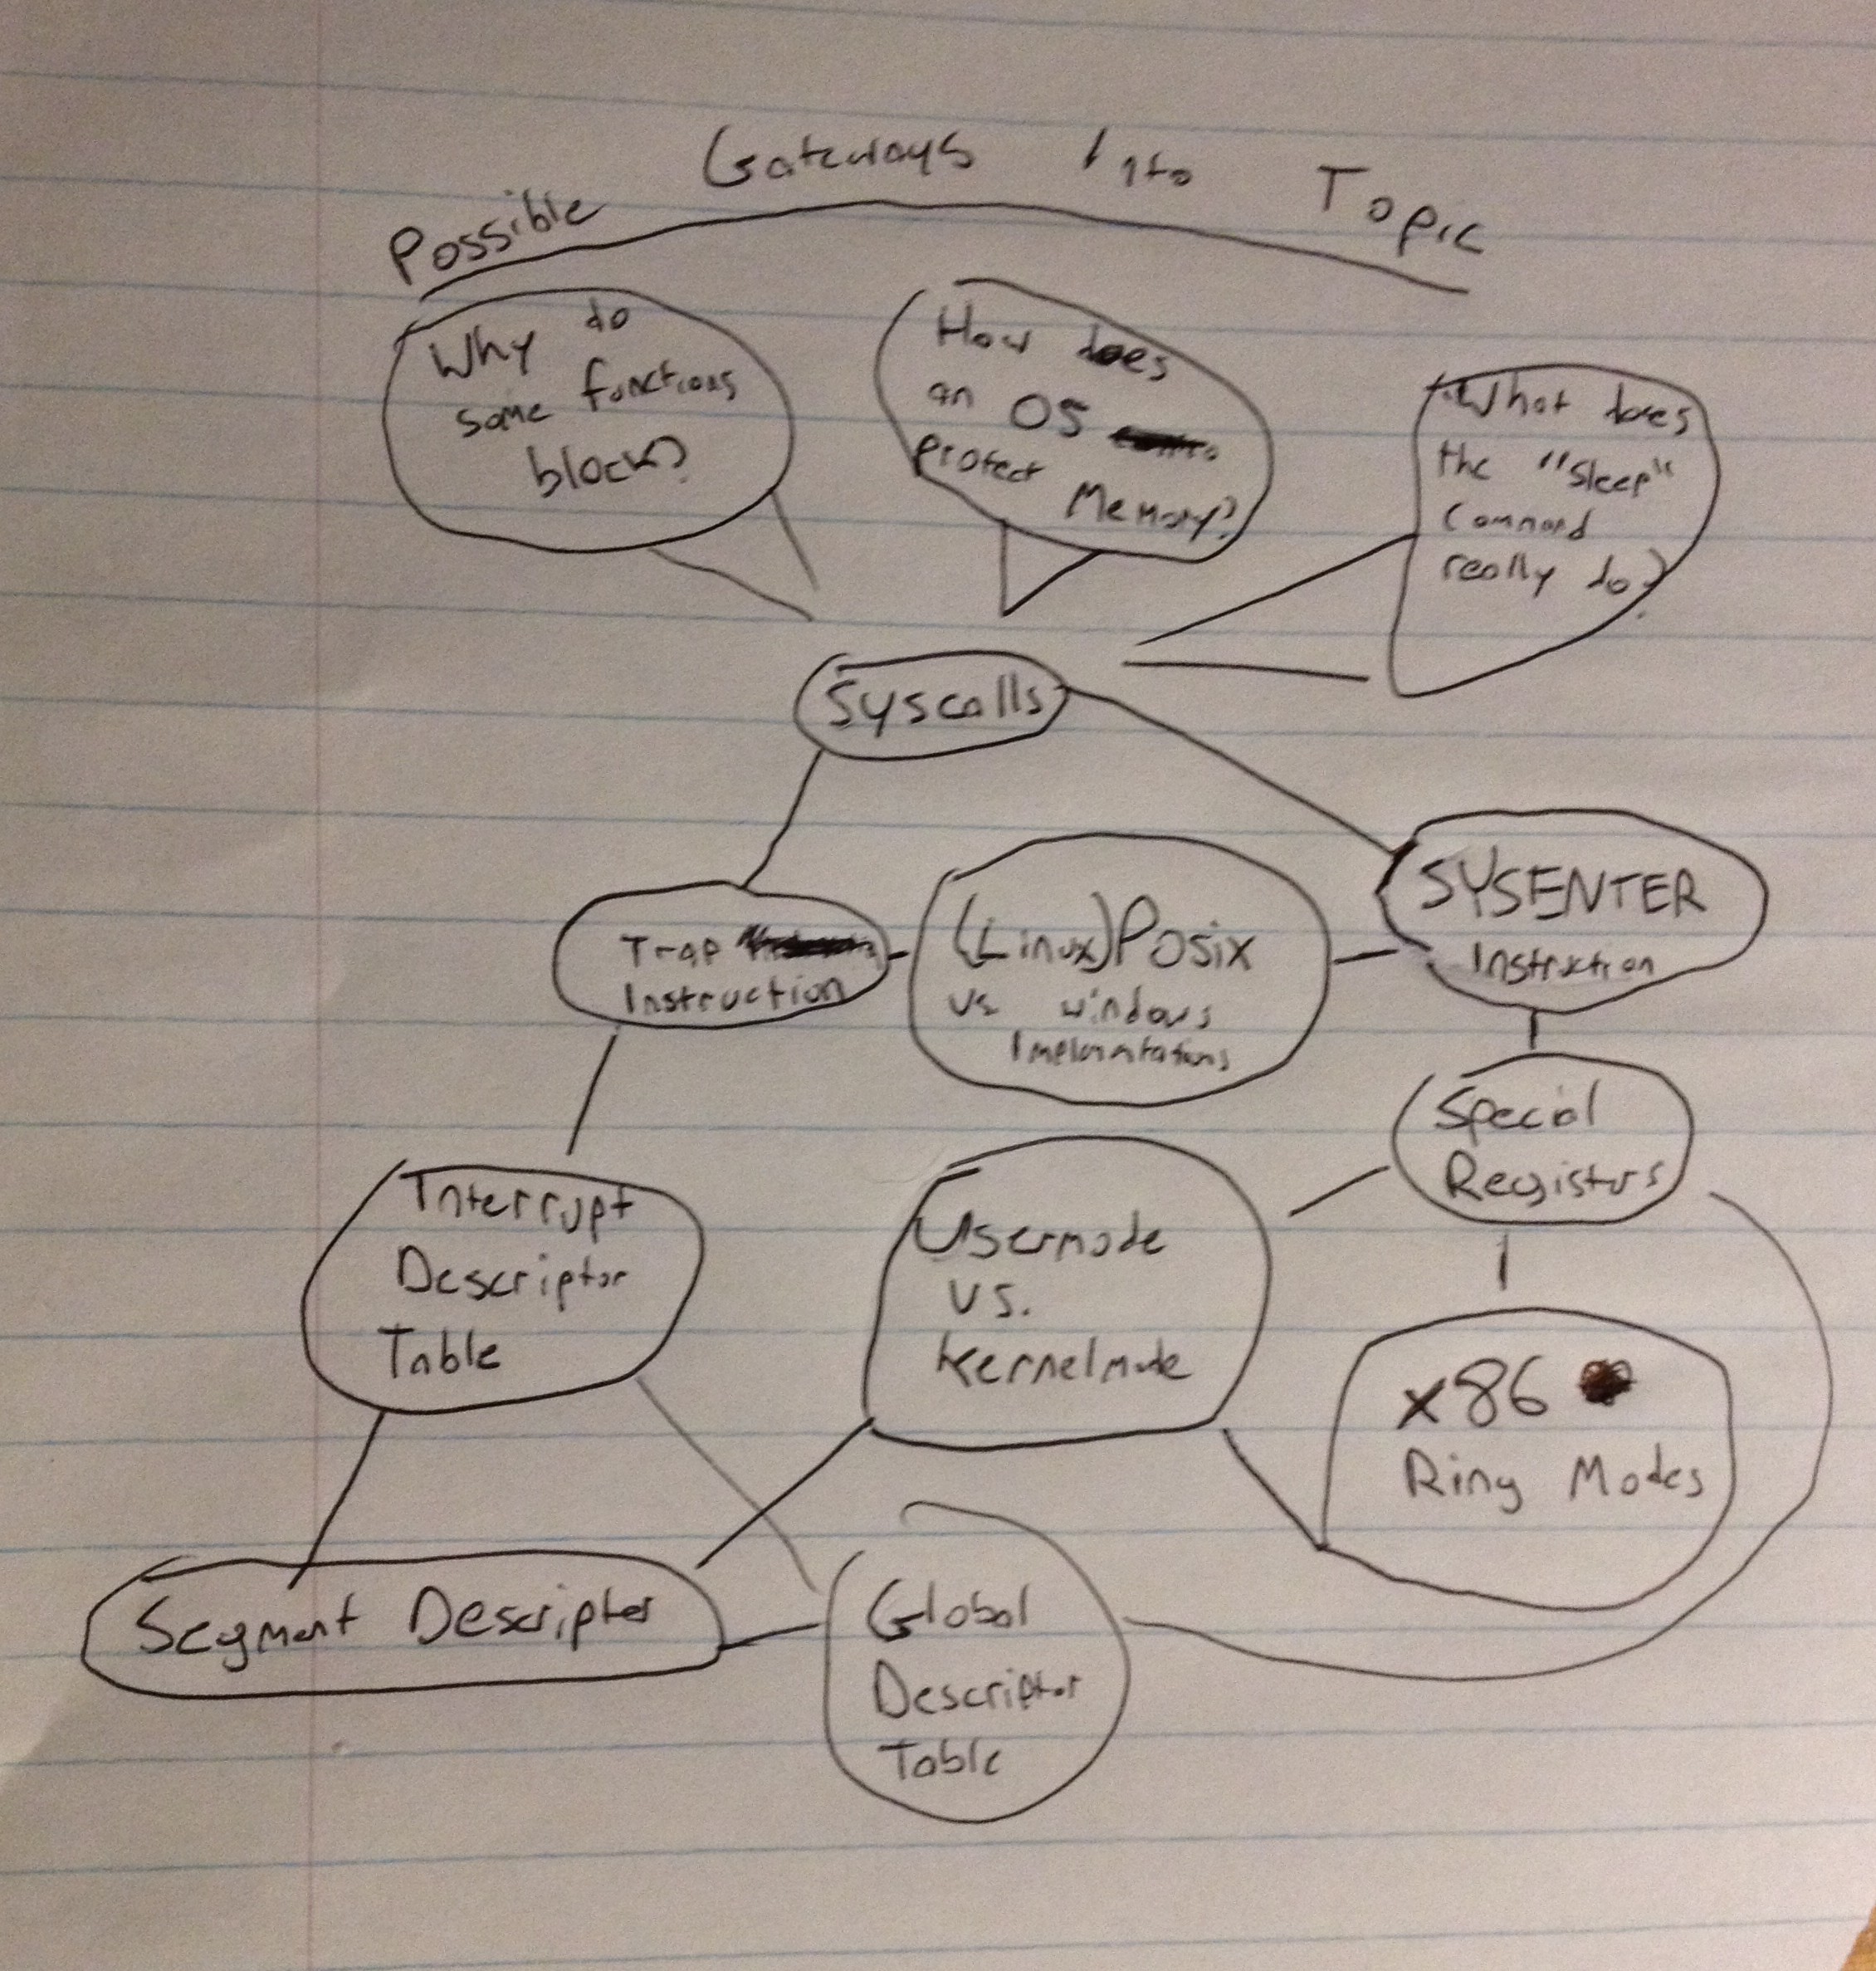 Possible Gateways Into Topic
Why do
some functions
block?
How does
an OS
protect
Memory?
What does
the "sleep"
Command
really do?
Syscalls
Trap
Instruction
(Linux) Posix
vs windows
SYSENTER
Instruction
Special
Registers
Interrupt
Descriptor
Table
Usermode
vs.
Kernelmode
x86
Ring Modes
Segment Descripter
Global
Descriptor
Table